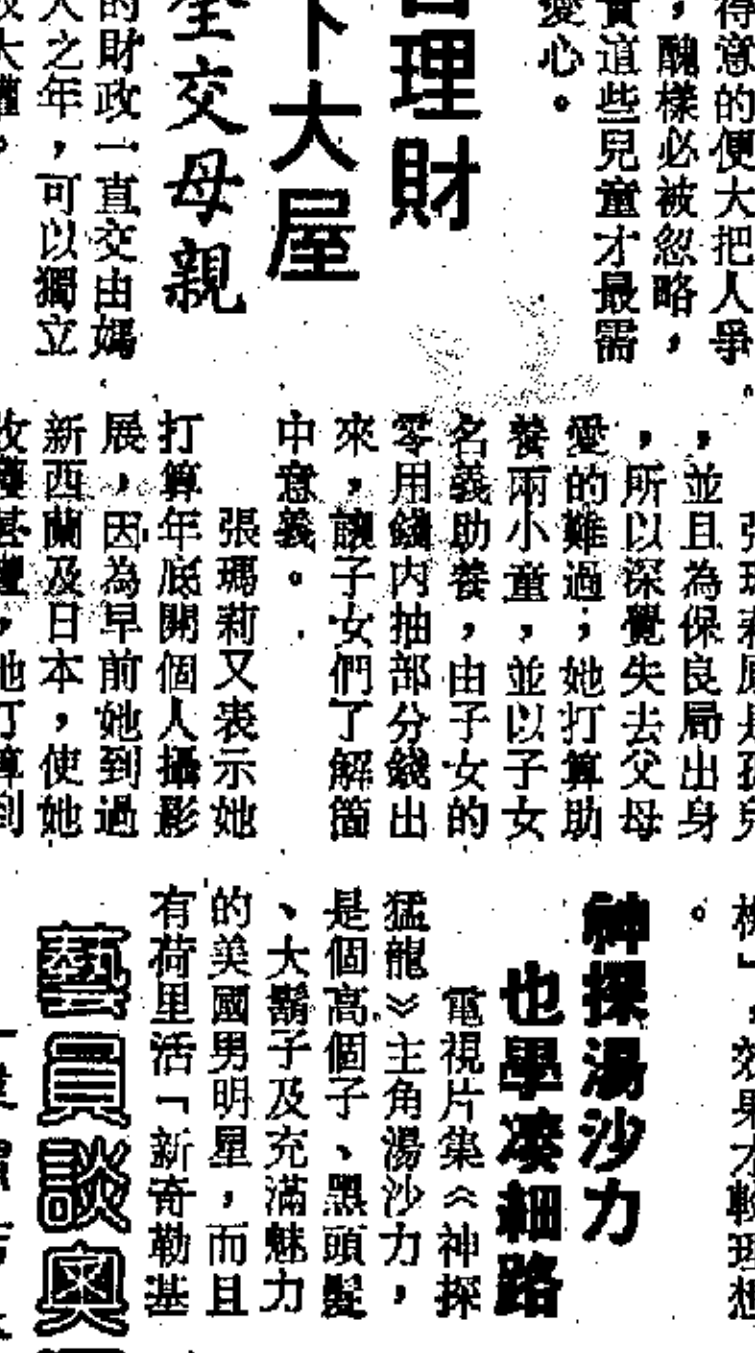 得意的便大把人爭
，醜樣必被忽略，
這些兒童才最需
愛心。
理財
下大屋
交母親
的財政一直交由媽
人之年，可以獨立
，並且為保良局出身
，所以深覺失去父母
愛的難過；她打算助
養兩小童，並以子女
名義助養，由子女的
零用錢內抽部分錢出
來，讓子女們了解箇
中意義。
張瑪莉又表示她
打算年底開個人攝影
展，因為早前她到過
新西蘭及日本，使她
」，效果才較理想
。
神探湯沙力
也學湊細路
電視片集《神探
猛龍》主角湯沙力，
是個高個子、黑頭髮
、大鬍子及充滿魅力
的美國男明星，而且
有荷里活「新奇勒基
藝員談奧